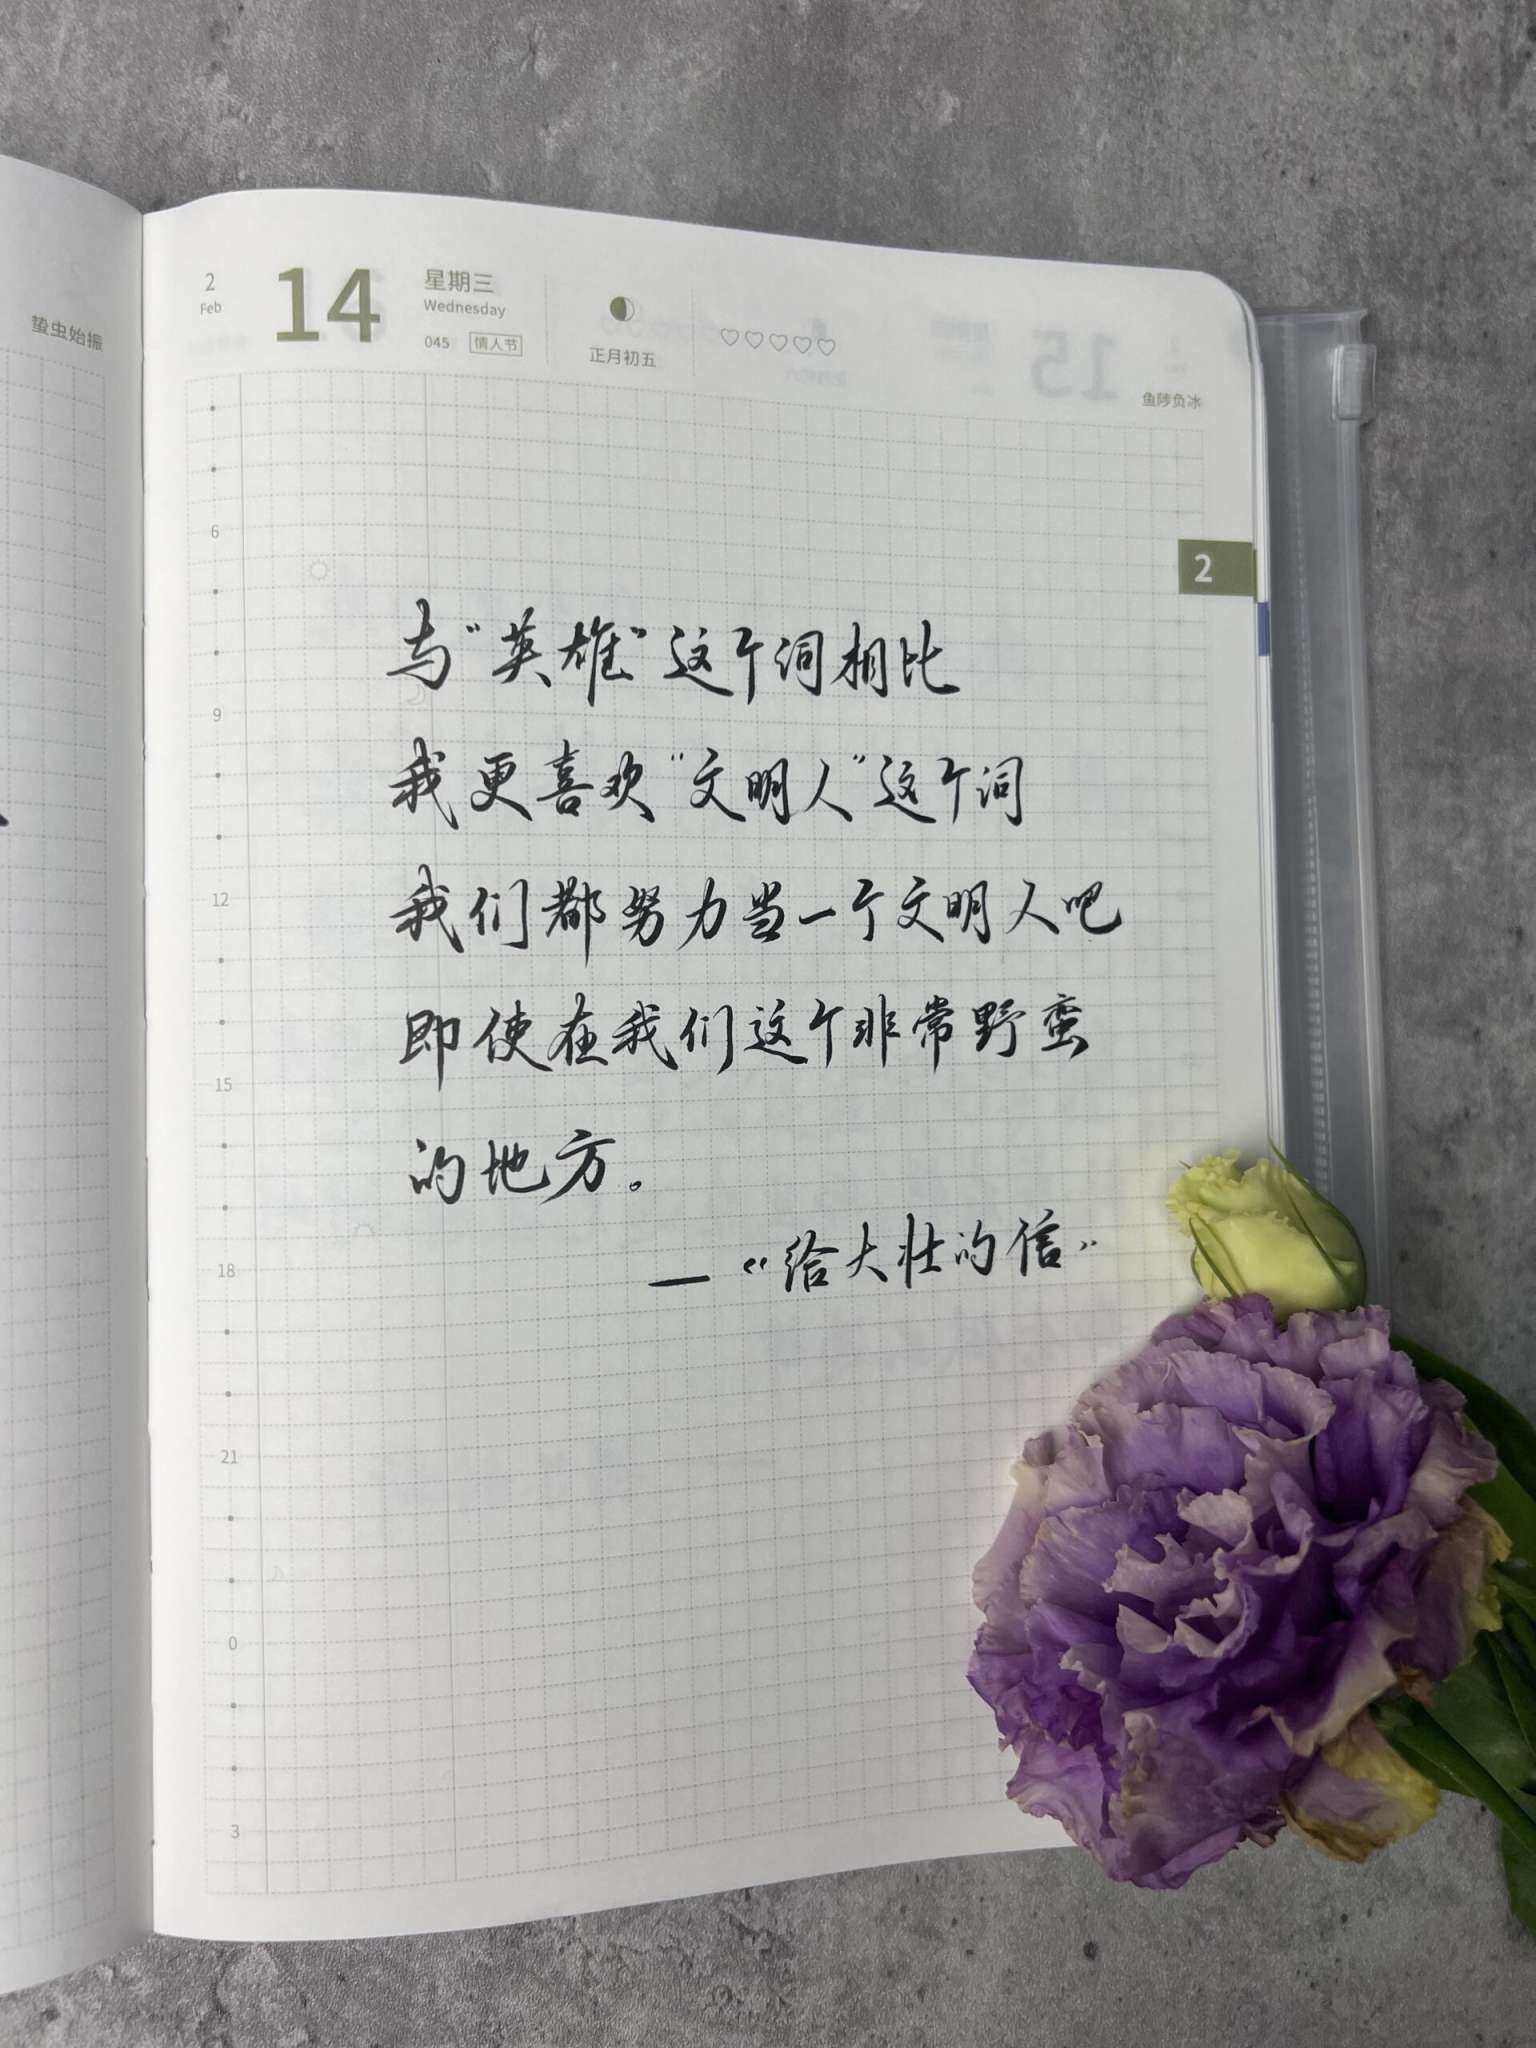 蛰虫始振
2
Feb
14
星期三
Wednesday
045 情人节
正月初五
鱼陟负冰
2
6
9
12
15
18
21
0
3
与“英雄”这个词相比
我更喜欢“文明人”这个词
我们都努力当一个文明人吧
即使在我们这个非常野蛮
的地方。
—“给大壮的信”